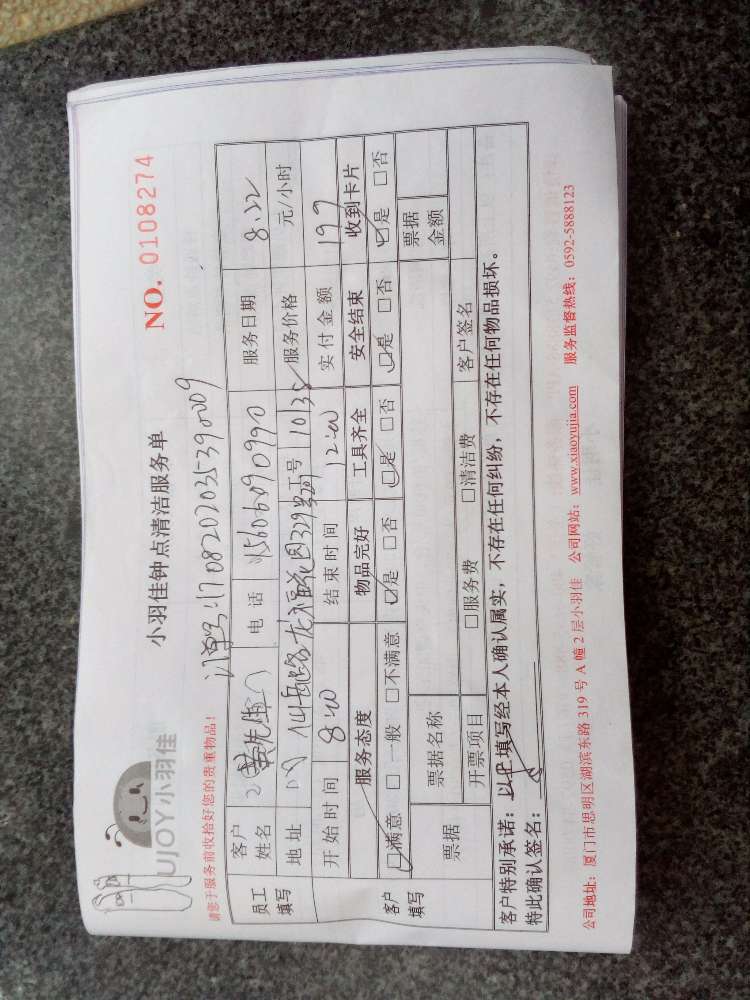 UJOY小羽佳
小羽佳钟点清洁服务单
NO. 0108274
请您于服务前收拾好您的贵重物品!
订单号:1708202035390009
员工填写
客户姓名
电话 15606090990
服务日期 8.22
地址
工号 10135
服务价格 元/小时
开始时间 8:00
结束时间 12:00
实付金额 197
客户填写
服务态度 物品完好 工具齐全 安全结束 收到卡片
☑满意 □一般 □不满意 ☑是 □否 ☑是 □否 ☑是 □否 ☑是 □否
票据 票据名称 票据金额
开票项目 □服务费 □清洁费 客户签名
客户特别承诺:以上填写经本人确认属实,不存在任何纠纷,不存在任何物品损坏。
特此确认签名:
公司地址:厦门市思明区湖滨东路 319 号 A 幢 2 层小羽佳 公司网站:www.xiaoyujia.com 服务监督热线:0592-5888123